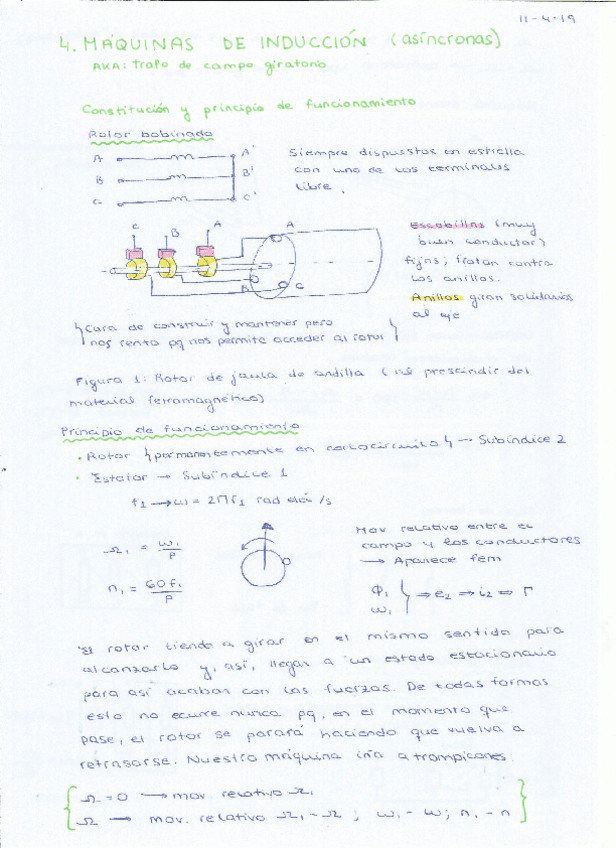 11-4-19
4. MÁQUINAS DE INDUCCIÓN (asíncronas)
AKA: trafo de campo giratorio
Constitución y principio de funcionamiento
Rotor bobinado
A A'
B B'
C C'
Siempre dispuestos en estrella
con uno de los terminales
libre.
C B A A
B C
Escobillas (muy
buen conductor)
fijas; frotan contra
los anillos.
Anillos giran solidarios
al eje
Cara de construir y mantener pero
nos renta pq nos permite acceder al rotor
Figura 1: Rotor de jaula de ardilla ( prescindir del
material ferromagnético)
Principio de funcionamiento
• Rotor permanentemente en cortocircuito → Subíndice 2
• Estator → Subíndice 1
f1 → ω = 2πf1 rad eléc/s
Ω1 = ω1/P
n1 = 60f1/P
Mov relativo entre el
campo y los conductores
→ Aparece fem
Φ1
ω1
⇒ e2 ⇒ i2 ⇒ Γ
El rotor tiende a girar en el mismo sentido para
alcanzarlo y, así, llegar a un estado estacionario
para así acabar con las fuerzas. De todas formas
esto no ocurre nunca pq, en el momento que
pase, el rotor se parará haciendo que vuelva a
retrasarse. Nuestra máquina iría a trompicones.
Ω = 0 → mov. relativo Ω1
Ω → mov. relativo Ω1 - Ω ; ω1 - ω; n1 - n